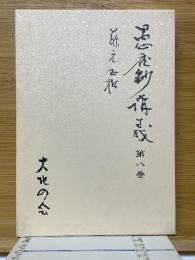 愚禿鈔講義 第八巻
藤元正樹
大地の会